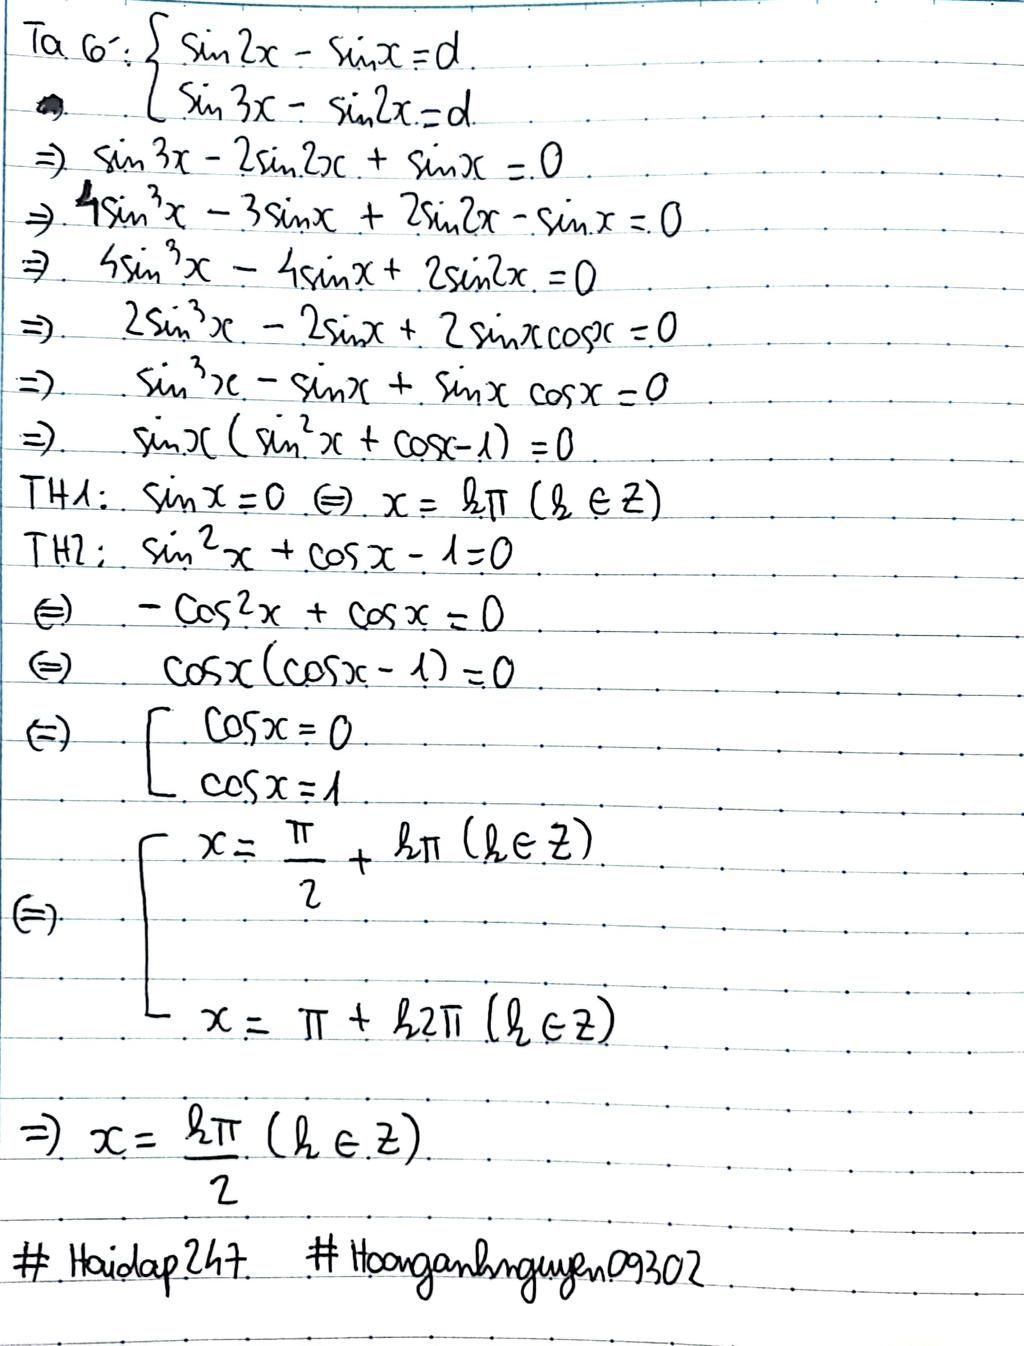 Ta có: { sin2x - sinx = d
sin3x - sin2x = d
=> sin3x - 2sin2x + sinx = 0
=> 4sin³x - 3sinx + 2sin2x - sinx = 0
=> 4sin³x - 4sinx + 2sin2x = 0
=> 2sin³x - 2sinx + 2sinxcosx = 0
=> sin³x - sinx + sinx cosx = 0
=> sinx(sin²x + cosx - 1) = 0
TH1: sinx = 0 <=> x = kπ (k ∈ Z)
TH2: sin²x + cosx - 1 = 0
<=> - cos²x + cosx = 0
<=> cosx(cosx - 1) = 0
<=> [ cosx = 0
cosx = 1
<=> [ x = π/2 + kπ (k ∈ Z)
x = π + k2π (k ∈ Z)
=> x = kπ/2 (k ∈ Z)
# Hoidap247 # Hoanganhnguyen09302